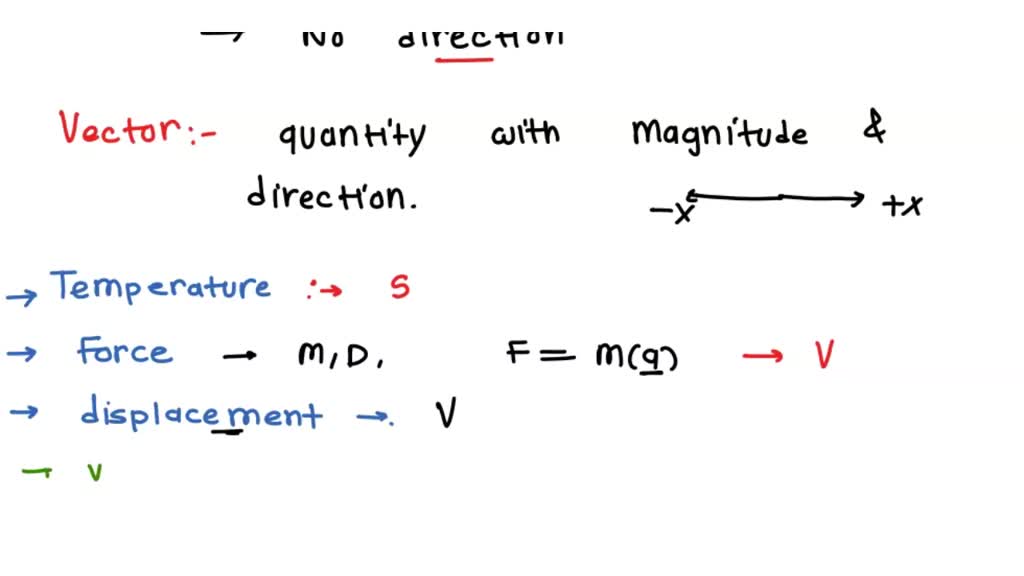 → No direction
Vector:- quantity with magnitude &
direction. -x +x
→ Temperature :→ S
→ Force → M, D, F = m(a) → V
→ displacement →. V
→ v